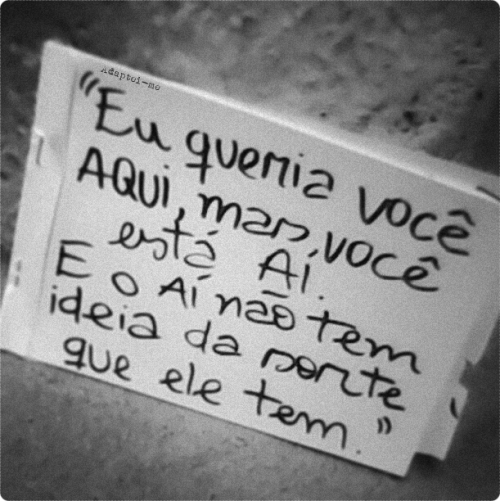 Adaptei-me
"Eu queria você
AQUI, mas, você
está Aí.
E o Aí não tem
ideia da sorte
que ele tem."